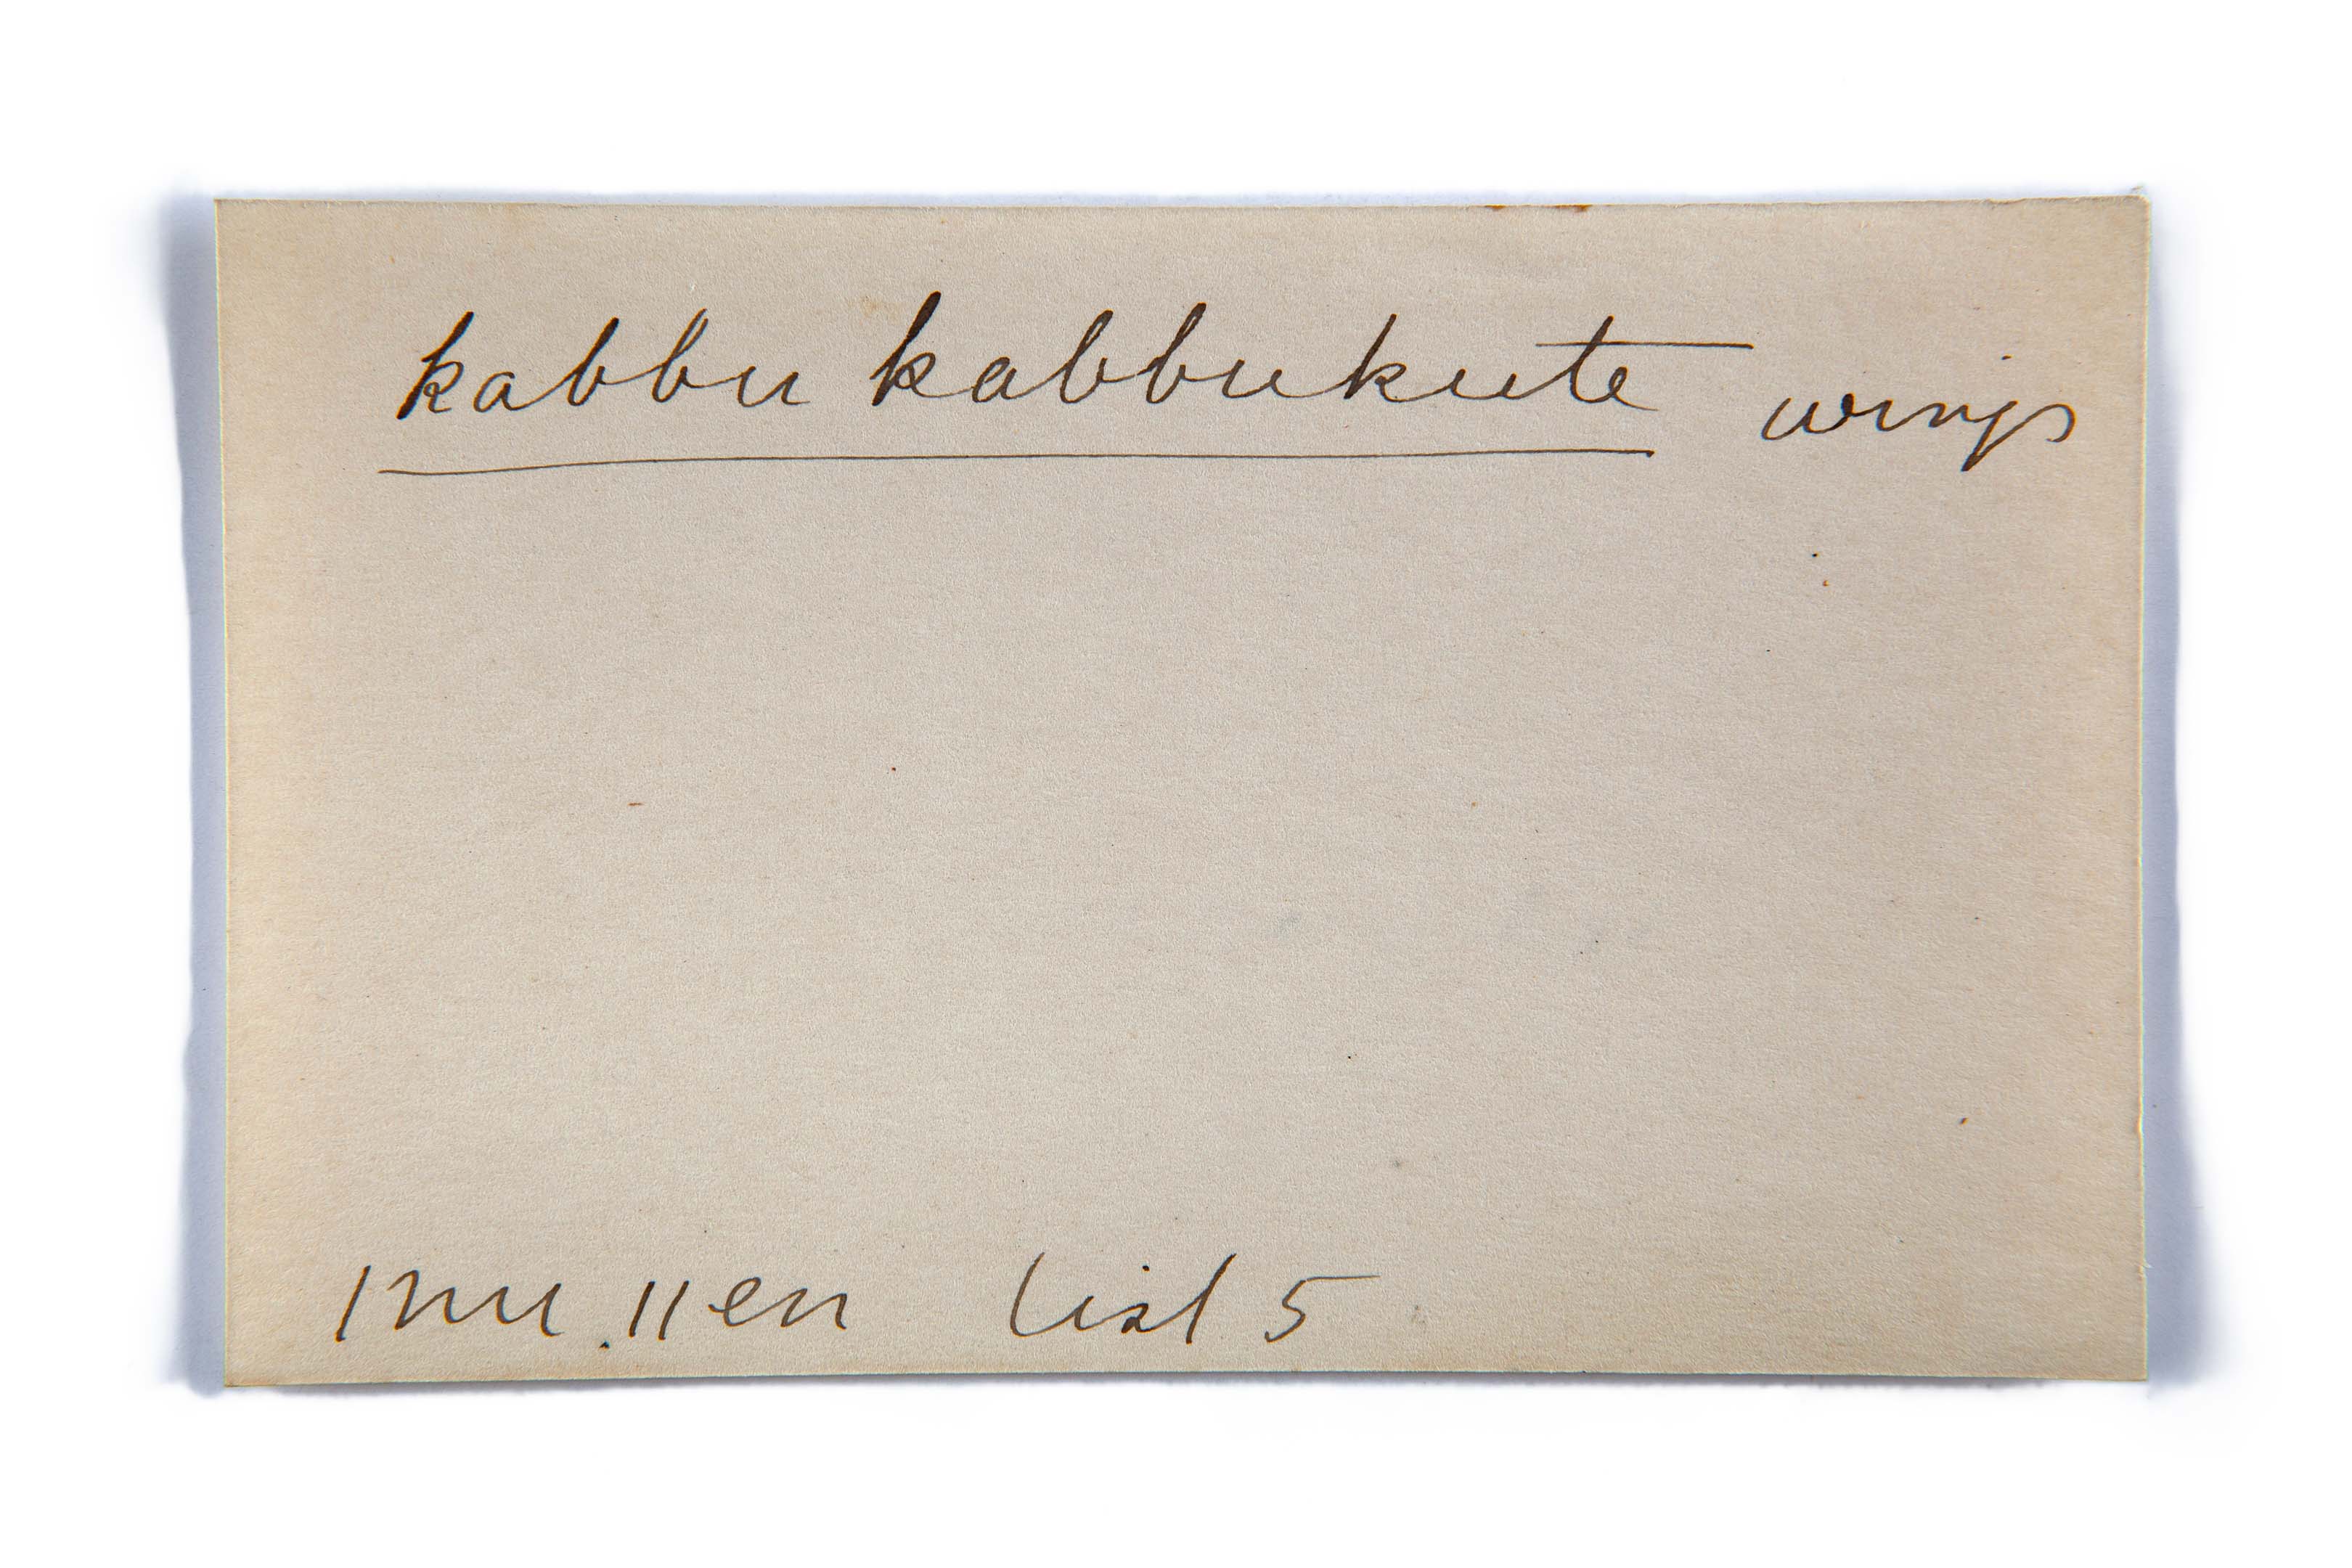 kabbu kabbukute wings
List 5